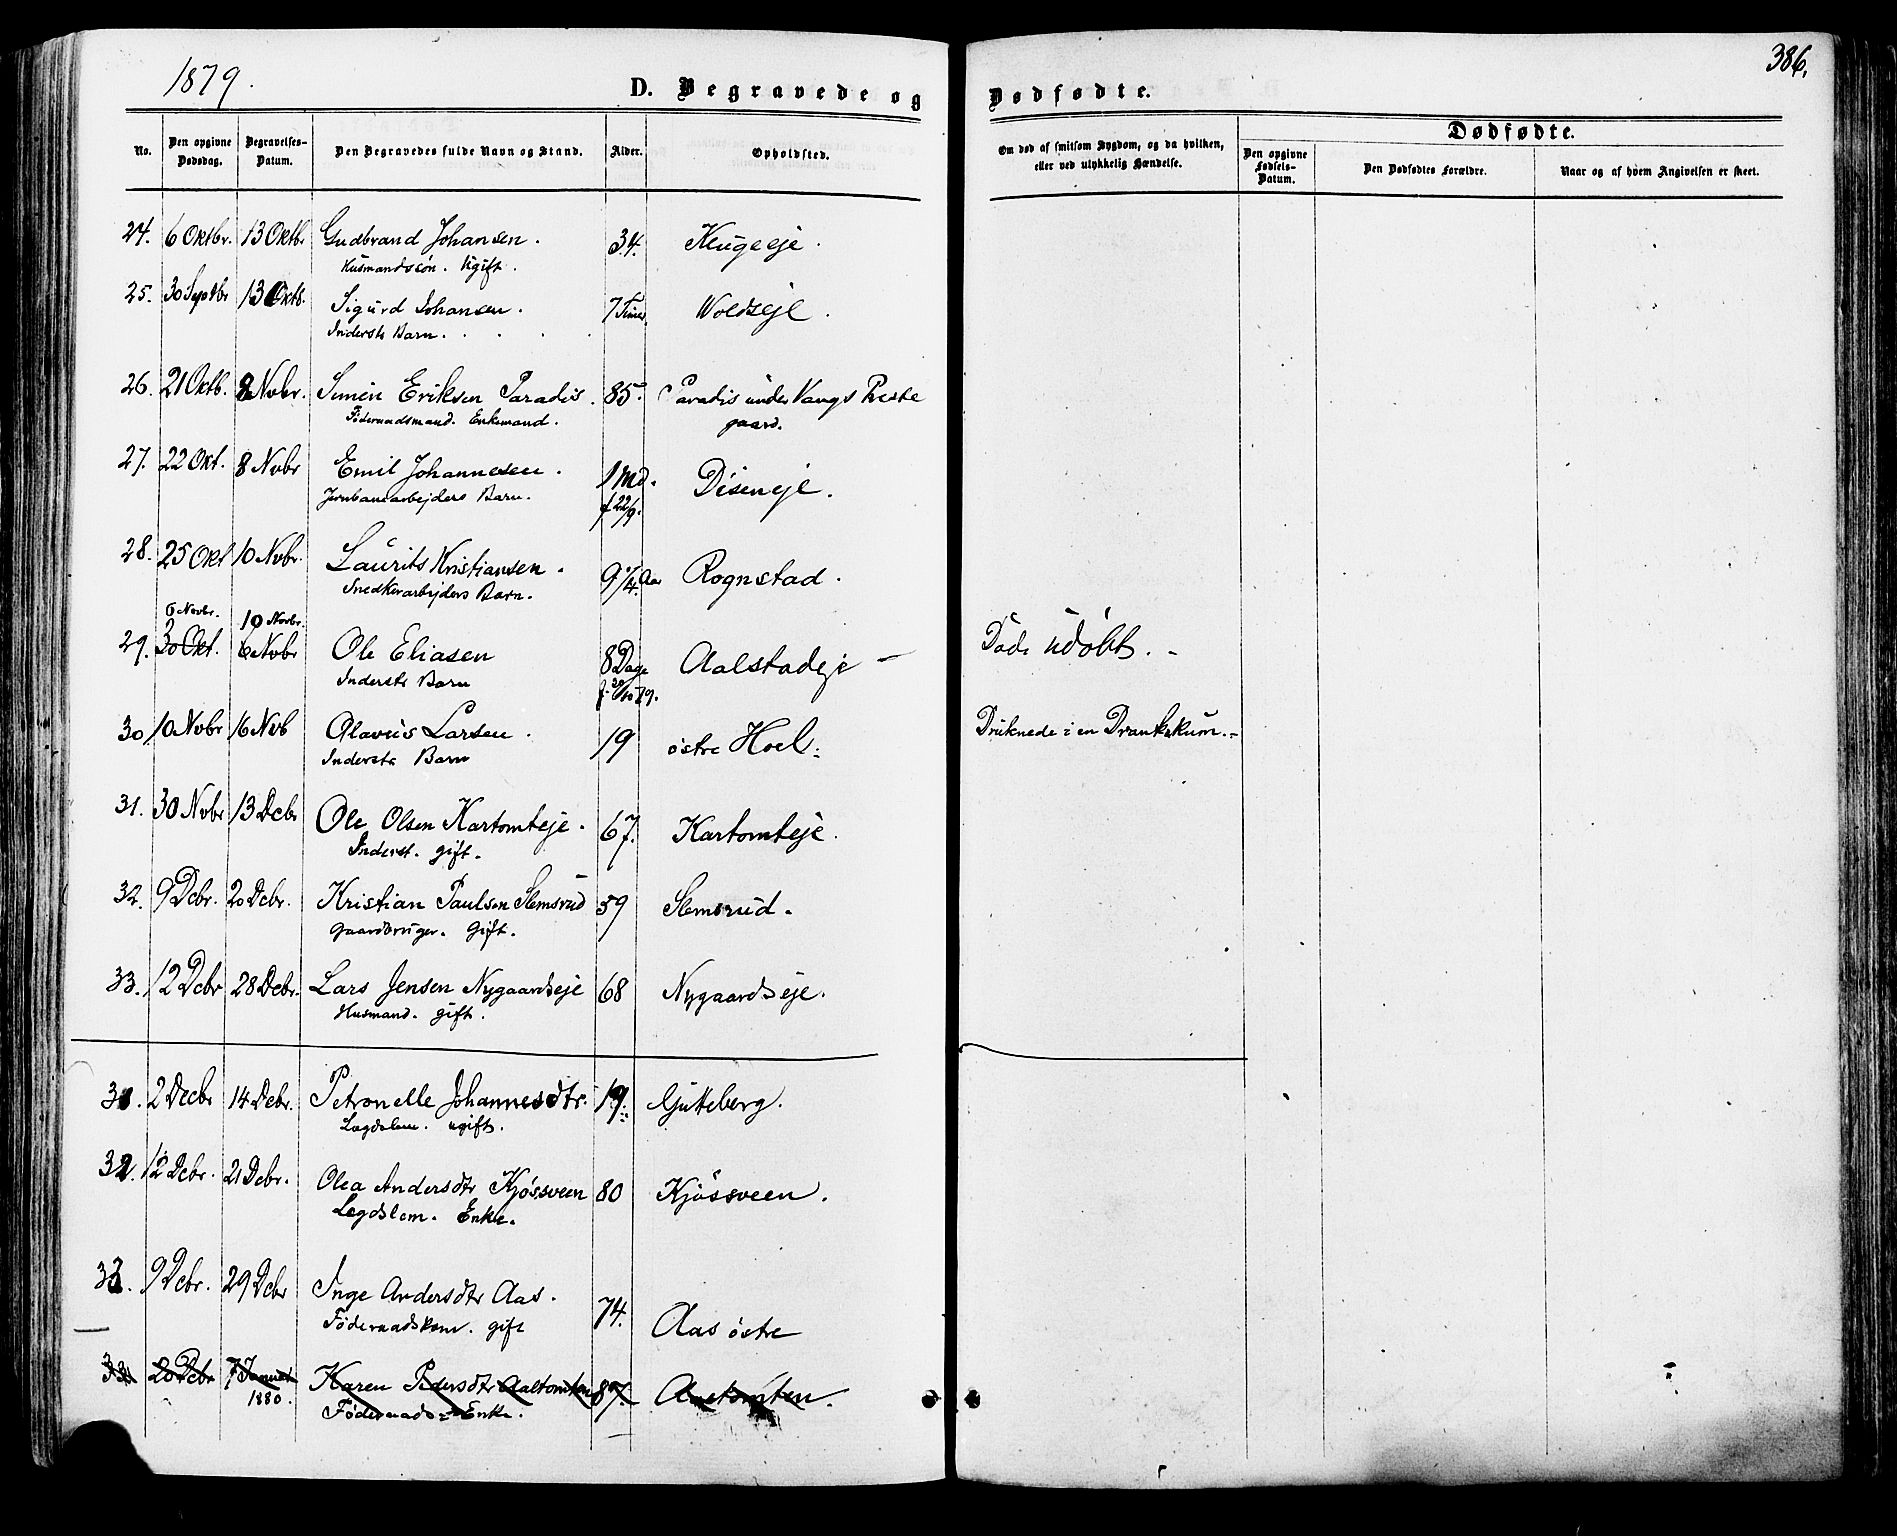 1879.
386.
D. Begravede og
Dødfødte.
No.
Den opgivne Dødsdag.
Begravelses-Datum.
Den Begravedes fulde Navn og Stand.
Alder.
Opholdsted.
Om død af smitsom Sygdom, og da hvilken, eller ved ulykkelig Hændelse.
Dødfødte.
Den opgivne Fødsels-Datum.
Den Dødfødtes Forældre.
Naar og af hvem Angivelsen er skeet.
24. 6 Oktbr. 13 Oktbr Gudbrand Johansen. 34.
Husmandssön. Ugift.
25. 30 Septbr 13 Oktb. Sigurd Johansen. 7 Timer Woldseje.
Indersts Barn.
26. 21 Oktb. 8 Novbr. Simen Eriksen Paradis. 85. Paradis under Vangs Preste
Föderaadsmand. Enkemand. gaard.
27. 22 Okt. 8 Novbr Emil Johannesen. 1 Md. Diseneje.
Jernbanearbejders Barn. f 22/9.
28. 25 Okt 10 Novbr. Laurits Kristiansen. 9 1/4. Aar Rognstad.
Snedkerarbejders Barn.
6 Novbr. 10 Novbr.
29. 30 Okt. 6 Novbr Ole Eliasen 8 Dage Aalstadeje Döde udöbt.
Indersts Barn f. 30/10 79.
30 10 Novbr 16 Novb Olaves Larsen. 19 östre Hoel. Druknede i en Drankekum.
Indersts Barn
31. 30 Novbr 13 Dcbr Ole Olsen Kartomteje. 67. Kartomteje.
Inderst. gift.
32. 9 Dcbr. 20 Dcbr. Kristian Paulsen Slemsrud 59 Slemsrud.
Gaardbruger. Gift.
33. 12 Dcbr 28 Dcbr. Lars Jensen Nygaardseje 68 Nygaardseje.
Husmand. gift.
31. 2 Decbr 14 Debr. Petronelle Johannesdtr. 19. Gutteberg.
Lægdslem. ugift.
32. 12 Dcbr. 21 Dcbr. Olea Andersdtr Kjösveen 80 Kjösveen.
Lægdslem. Enke.
33. 9 Dcbr. 29 Dcbr Inge Andersdtr Aas. 74. Aas östre
Föderaadskone. gift
20 Dcbr 7 Januar Karen Pedersdtr Aaltomten 87.
1880. Föderaads-Enke.